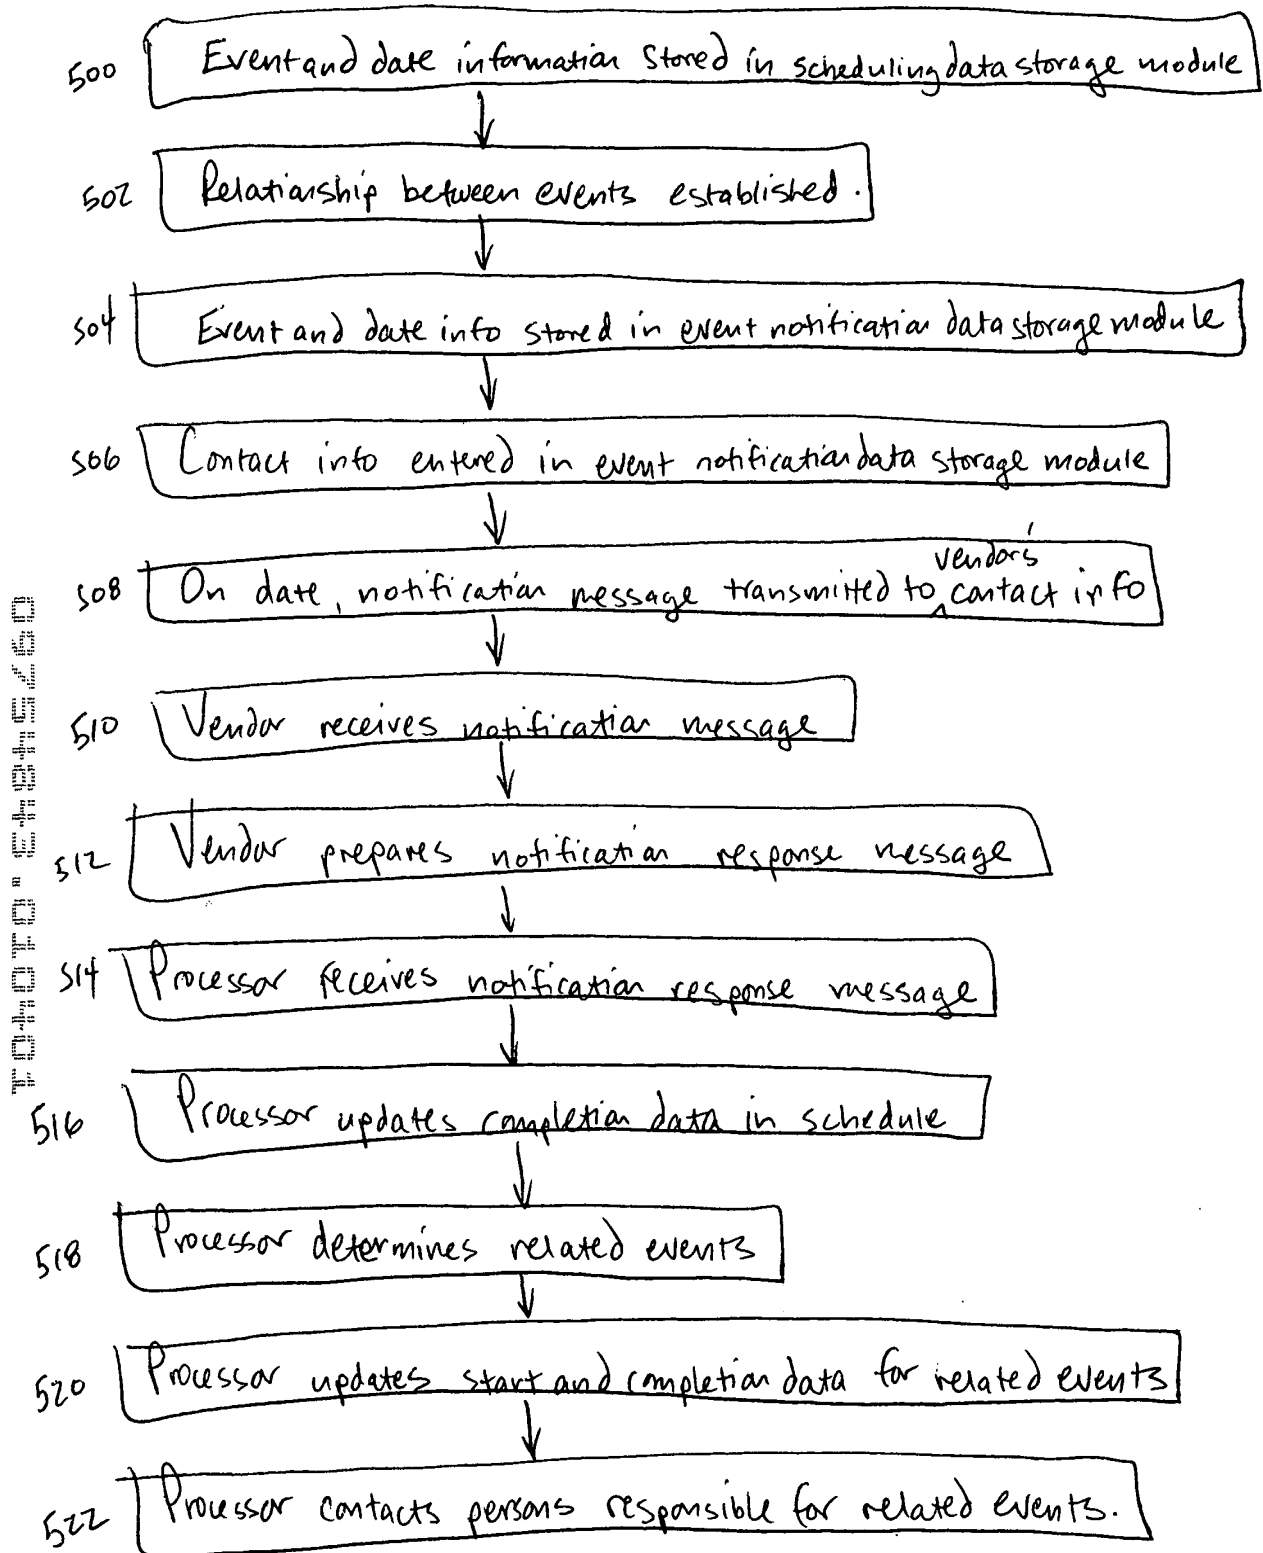 500 Event and date information stored in scheduling data storage module
502 Relationship between events established.
504 Event and date info stored in event notification data storage module
506 Contact info entered in event notification data storage module
vendor's
508 On date, notification message transmitted to contact info
510 Vendor receives notification message
512 Vendor prepares notification response message
514 Processor receives notification response message
516 Processor updates completion data in schedule
518 Processor determines related events
520 Processor updates start and completion data for related events
522 Processor contacts persons responsible for related events.
09754843.010401